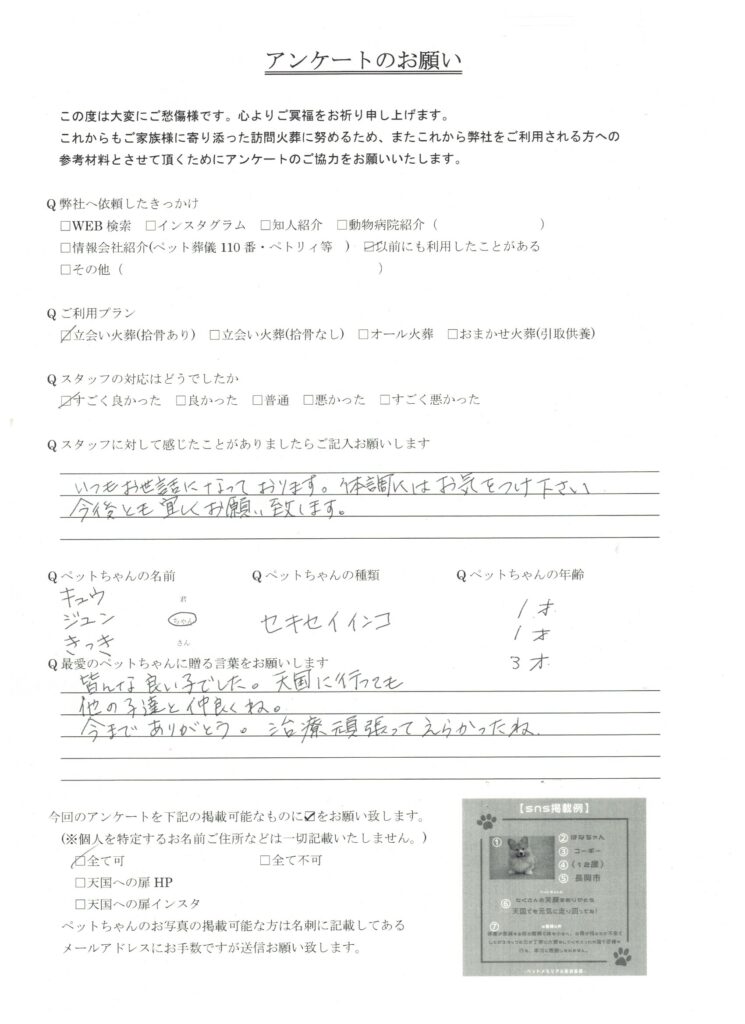 アンケートのお願い
この度は大変にご愁傷様です。心よりご冥福をお祈り申し上げます。
これからもご家族様に寄り添った訪問火葬に努めるため、またこれから弊社をご利用される方への
参考材料とさせて頂くためにアンケートのご協力をお願いいたします。
Q 弊社へ依頼したきっかけ
□WEB 検索 □インスタグラム □知人紹介 □動物病院紹介（ ）
□情報会社紹介(ペット葬儀 110 番・ペトリィ等 ) ☑以前にも利用したことがある
□その他（ ）
Q ご利用プラン
☑立会い火葬(拾骨あり) □立会い火葬(拾骨なし) □オール火葬 □おまかせ火葬(引取供養)
Q スタッフの対応はどうでしたか
☑すごく良かった □良かった □普通 □悪かった □すごく悪かった
Q スタッフに対して感じたことがありましたらご記入お願いします
いつもお世話になっております。体調にはお気をつけ下さい
今後とも宜しくお願い致します。
Q ペットちゃんの名前 Q ペットちゃんの種類 Q ペットちゃんの年齢
キュウ 君 1才
ジュン ちゃん セキセイインコ 1才
きっき さん 3才
Q 最愛のペットちゃんに贈る言葉をお願いします
皆んな良い子でした。天国に行っても
他の子達と仲良くね。
今までありがとう。治療頑張ってえらかったね
今回のアンケートを下記の掲載可能なものに☑をお願い致します。
(※個人を特定するお名前ご住所などは一切記載いたしません。)
☑全て可 □全て不可
□天国への扉 HP
□天国への扉インスタ
ペットちゃんのお写真の掲載可能な方は名刺に記載してある
メールアドレスにお手数ですが送信お願い致します。
【sns掲載例】
① ②はなちゃん
③コーギー
④(12歳)
⑤長岡市
⑥たくさんの笑顔をありがとう
天国でも元気に走り回ってね!
⑦